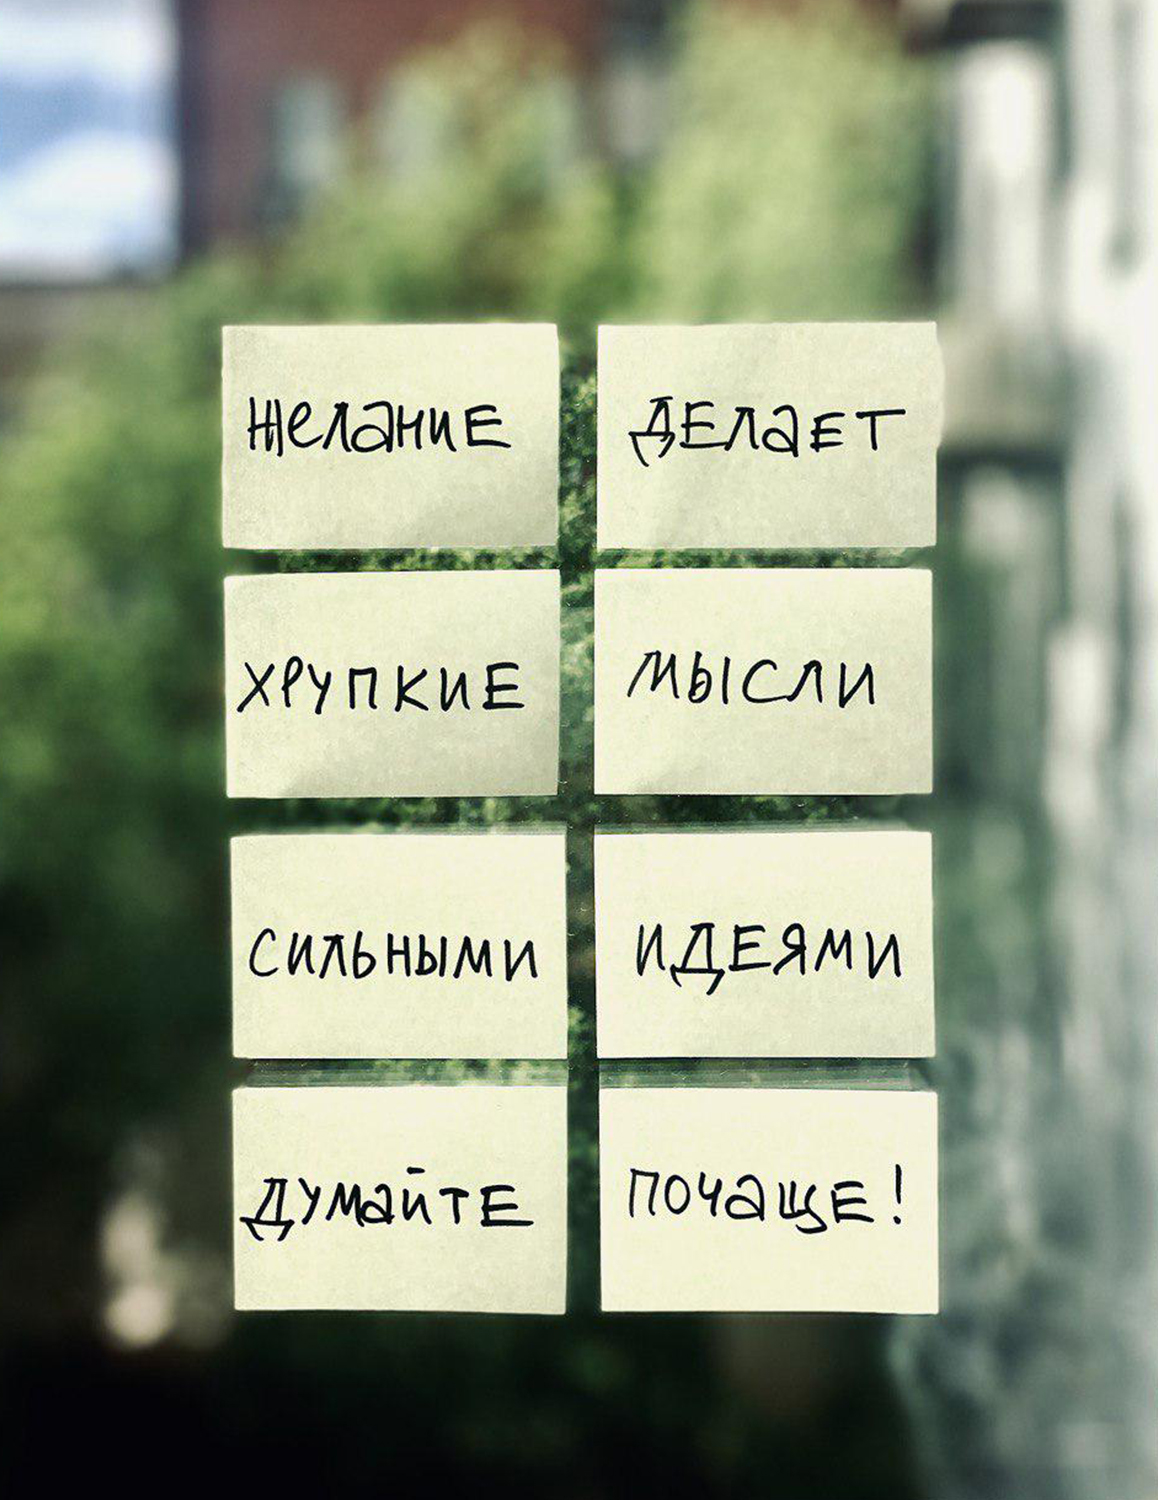 желание делает
хрупкие мысли
сильными идеями
думайте почаще!